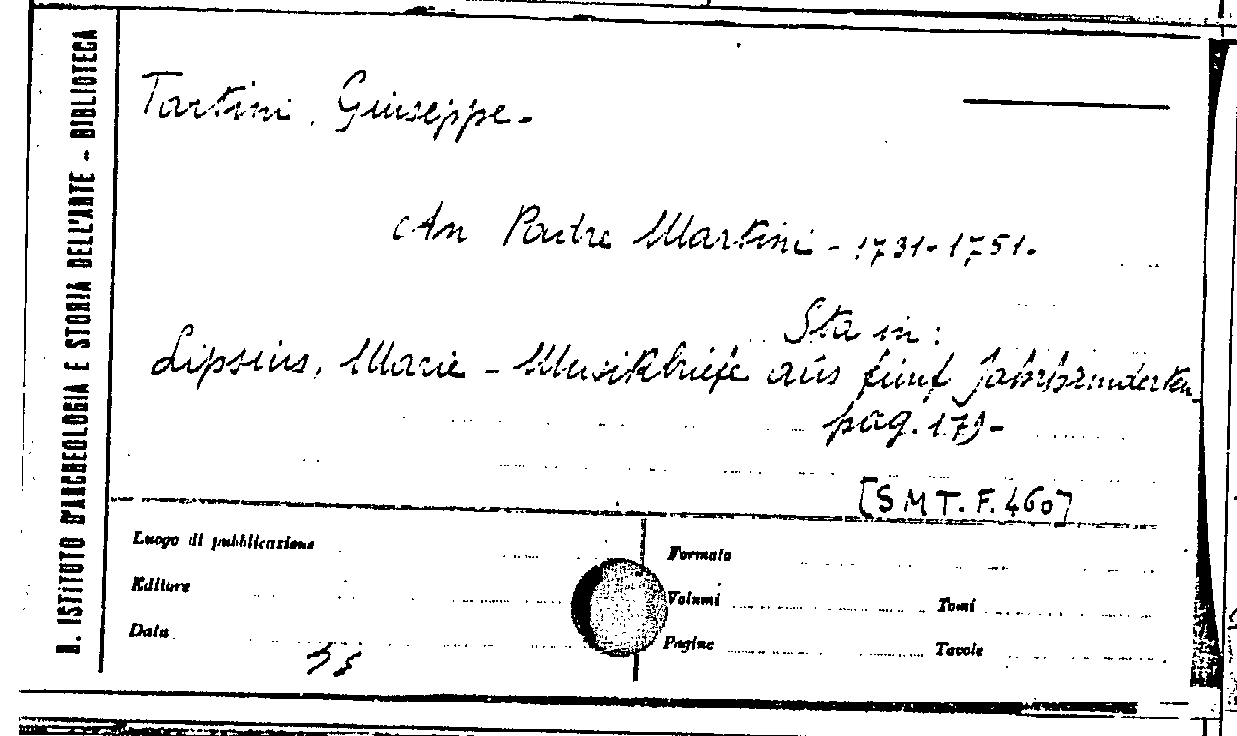 R. ISTITUTO D'ARCHEOLOGIA E STORIA DELL'ARTE - BIBLIOTECA
Tartini, Giuseppe -
An Padre Martini - 1731-1751.
Sta in:
Lipsius, Marie - Musikbriefe aus fünf Jahrhunderten
pag. 179 -
[SMT. F. 460]
Luogo di pubblicazione
Formato
Editore
Volumi
Tomi
Data
Pagine
Tavole